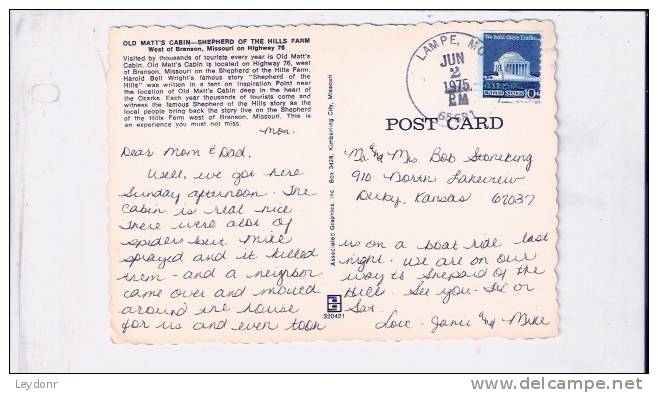 OLD MATT'S CABIN—SHEPHERD OF THE HILLS FARM
West of Branson, Missouri on Highway 76
Visited by thousands of tourists every year is Old Matt's
Cabin. Old Matt's Cabin is located on Highway 76, west
of Branson, Missouri on the Shepherd of the Hills Farm.
Harold Bell Wright's famous story "Shepherd of the
Hills" was written in a tent on Inspiration Point near
the location of Old Matt's Cabin deep in the heart of
the Ozarks. Each year thousands of tourists come and
witness the famous Shepherd of the Hills story as the
local people bring back the story live on the Shepherd
of the Hills Farm west of Branson, Missouri. This is
an experience you must not miss.
Mon.
Dear Mom & Dad,
Well, we got here
Sunday afternoon. The
cabin is real nice
There were alot of
spiders but Mike
sprayed and it killed
them - and a neighbor
came over and mowed
around the house
for us and even took
Associated Graphics, Inc. Box 3428, Kimberling City, Missouri
320421
LAMPE, MO
JUN
2
1975
PM
We hold these Truths...
UNITED STATES 10c
POST CARD
Mr. and Mrs. Bob Stoneking
910 North Lakeview
Derby, Kansas 67037
us on a boat ride last
night. We are on our
way to Shepard of the
Hills. See you - Fri or
Sat.
Love - Janie and Mike
Leydonr
delcampe.net